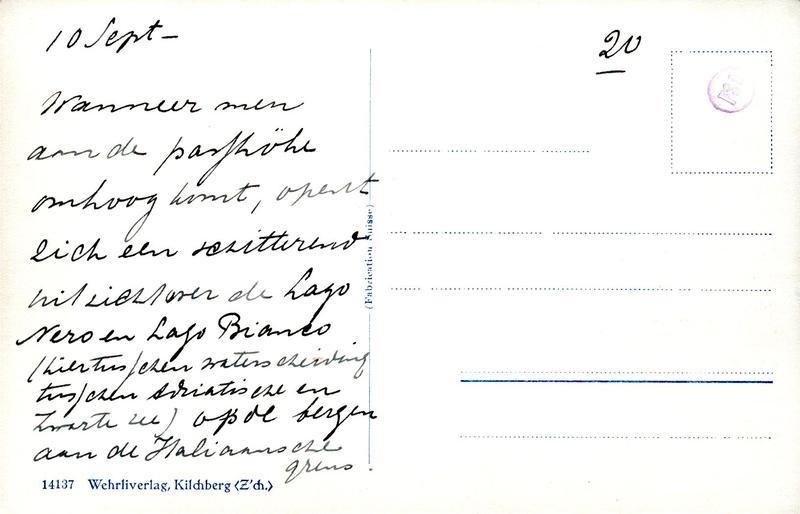 10 Sept -
20
Wanneer men
aan de passhöhe
omhoog komt, opent
zich een schitterend
uitzicht over de Lago
Nero en Lago Bianco
(hiertusschen waterscheiding
tusschen Adriatische en
Zwarte zee) op de bergen
aan de Italiaansche
grens.
(Fabrication Suisse)
14137 Wehrliverlag, Kilchberg (Z'ch.)